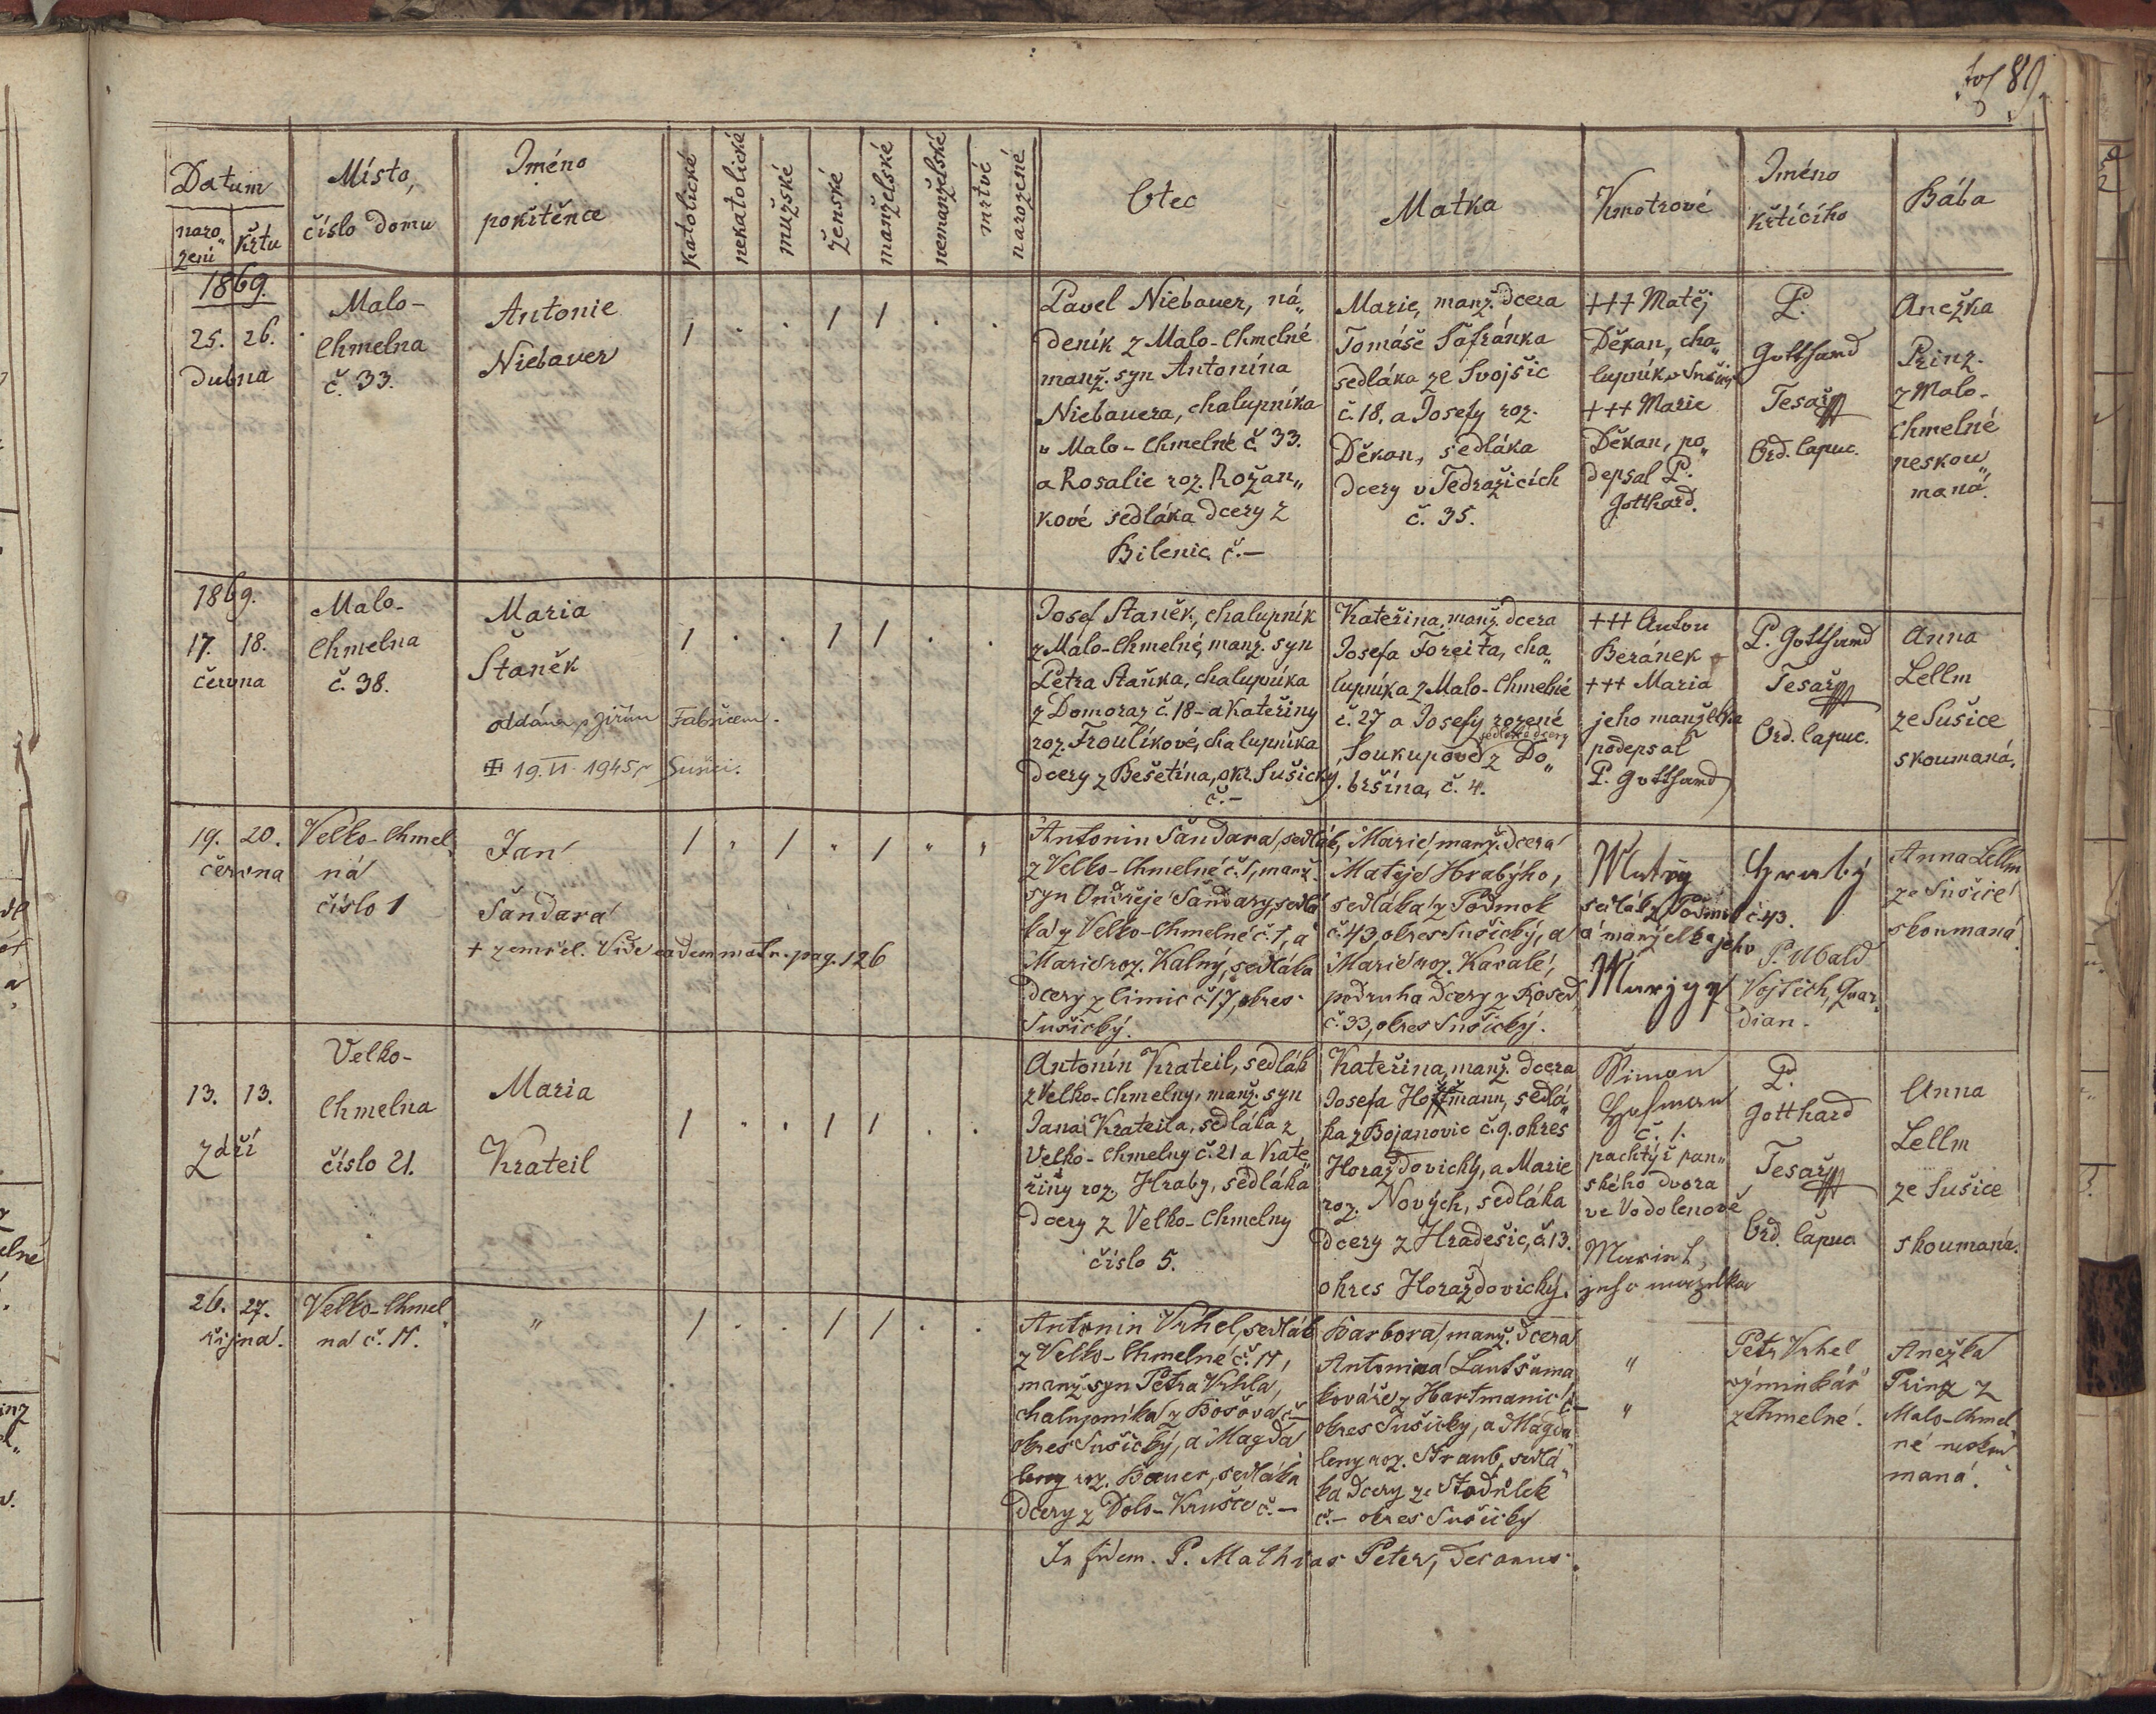 fol 89.
Datum
naro„
zení
křtu
Místo,
číslo domu
Jméno
pokřtěnce
katolické
nekatolické
mužské
ženské
manželské
nemanželské
mrtvé
narozené
Otec
Matka
Kmotrové
Jméno
křtícího
Bába
1869.
25. 26.
dubna
Malo-
Chmelna
č. 33.
Antonie
Niebauer
Pavel Niebauer, ná„
deník z Malo-Chmelné
manž. syn Antonína
Niebauera, chalupníka
„ Malo-Chmelné č. 33.
a Rosalie roz. Rožan„
kové sedláka dcery z
Bilenic č.—
Marie, manž. dcera
Tomáše Šafránka
sedláka ze Svojšic
č. 18. a Josefy roz.
Děkan, sedláka
dcery v Tedražicích
č. 35.
+++ Matěj
Děkan, cha„
lupník
+++ Marie
Děkan, po„
depsal P.
Gotthard.
P.
Gotthard
Tesař
Ord. Capuc.
Anežka
Prinz.
z Malo-
Chmelné
neskou„
maná.
1869.
17. 18.
června
Malo-
Chmelna
č. 38.
Maria
Staněk
oddána s Jiřím Fabričem.
19. VI. 1945 Sušici.
Josef Staněk, chalupník
z Malo-Chmelné, manž. syn
Petra Staňka, chalupníka
z Domoraz č. 18- a Kateřiny
roz. Froulíkové, chalupníka
dcery z Bešetína, okr. Sušický.
č.—
Kateřina, manž. dcera
Josefa Foreita, cha„
lupníka z Malo-Chmelné
č. 27 a Josefy rozené
sedláka dcery
Soukupové z Do„
bršína, č. 4.
+++ Anton
Beránek
+++ Maria
jeho manželka
podepsal
P. Gotthard
P. Gotthard
Tesař
Ord. Capuc.
Anna
Lellm
ze Sušice
skoumaná.
19. 20.
června
Velko-Chmel„
ná
číslo 1
Jan
Šandara
+ zemřel. Vide eadem matr. pag. 126
Antonin Šandara, sedlák,
z Velko-Chmelné č. 1, manž.
syn Ondřeje Šandary, sedlá
ka z Velko-Chmelné č. 1, a
Marie roz. Kalný, sedláka
dcery z Cimic č. 17, okres
Sušický.
Marie manž. dcera
Matěje Hrabýho,
sedláka z Podmok
č. 43, okres Sušický, a
Marie roz. Karalé,
podruha dcery z Rosed,
č. 33, okres Sušický.
Matěj Hrabý
sedlák z Podmok č. 43.
a manželka jeho
P. Ubald
Vojtěch, Quar„
dian.
Anna Lellm
ze Sušice
skoumaná.
13. 13.
Září
Velko-
Chmelna
číslo 21.
Maria
Krateil
Antonín Krateil, sedlák
z Velko-Chmelny, manž. syn
Jana Krateila, sedláka z
Velko-Chmelny č. 21 a Kate„
řiny roz. Hraby, sedláka
dcery z Velko-Chmelny
číslo 5.
Kateřina, manž. dcera
Josefa Hoffmann, sedlá„
ka z Bojanovic č. 9. okres
Horažďovický, a Marie
roz. Nových, sedláka
dcery z Hradešic, č. 13.
okres Horažďovický.
Šimon
Hofman
č. 1.
pachtýř pan„
ského dvora
ve Vodolenově
jeho manzelka
P.
Gotthard
Tesař
Ord. Capuc.
Anna
Lellm
ze Sušice
skoumaná.
26. 27.
října.
Velko-Chmel„
na č. 11.
„
Antonin Vrhel, sedlák
z Velko-Chmelné č. 11,
manž. syn Petra Vrhla,
chalupníka z Bošova č.—
okres Sušický, a Magda„
leny roz. Bauer, sedláka
dcery z Dolo-Krušce č.—
Barbora, manž. dcera
Antonina Lautšuma
kováře z Hartmanic č.—
okres Sušický, a Magda„
leny roz. Straub, sedlá„
ka dcery ze Stodůlek
č.— okres Sušický
„
„
Petr Vrhel
výminkář
z Chmelné.
Anežka
Prinz z
Malo-Chmel„
né neskou„
maná.
In fidem. P. Mathias Peter, decanus.